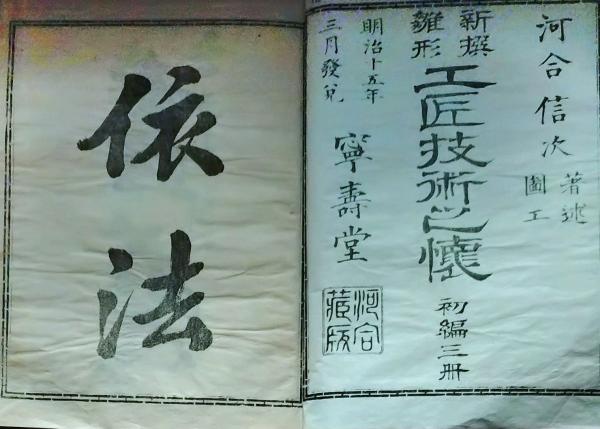 河合信次 著述
圖工
新撰
雛形
工匠技術之懷
初編三冊
明治十五年
三月發兌
寧壽堂
河合
藏版
依法